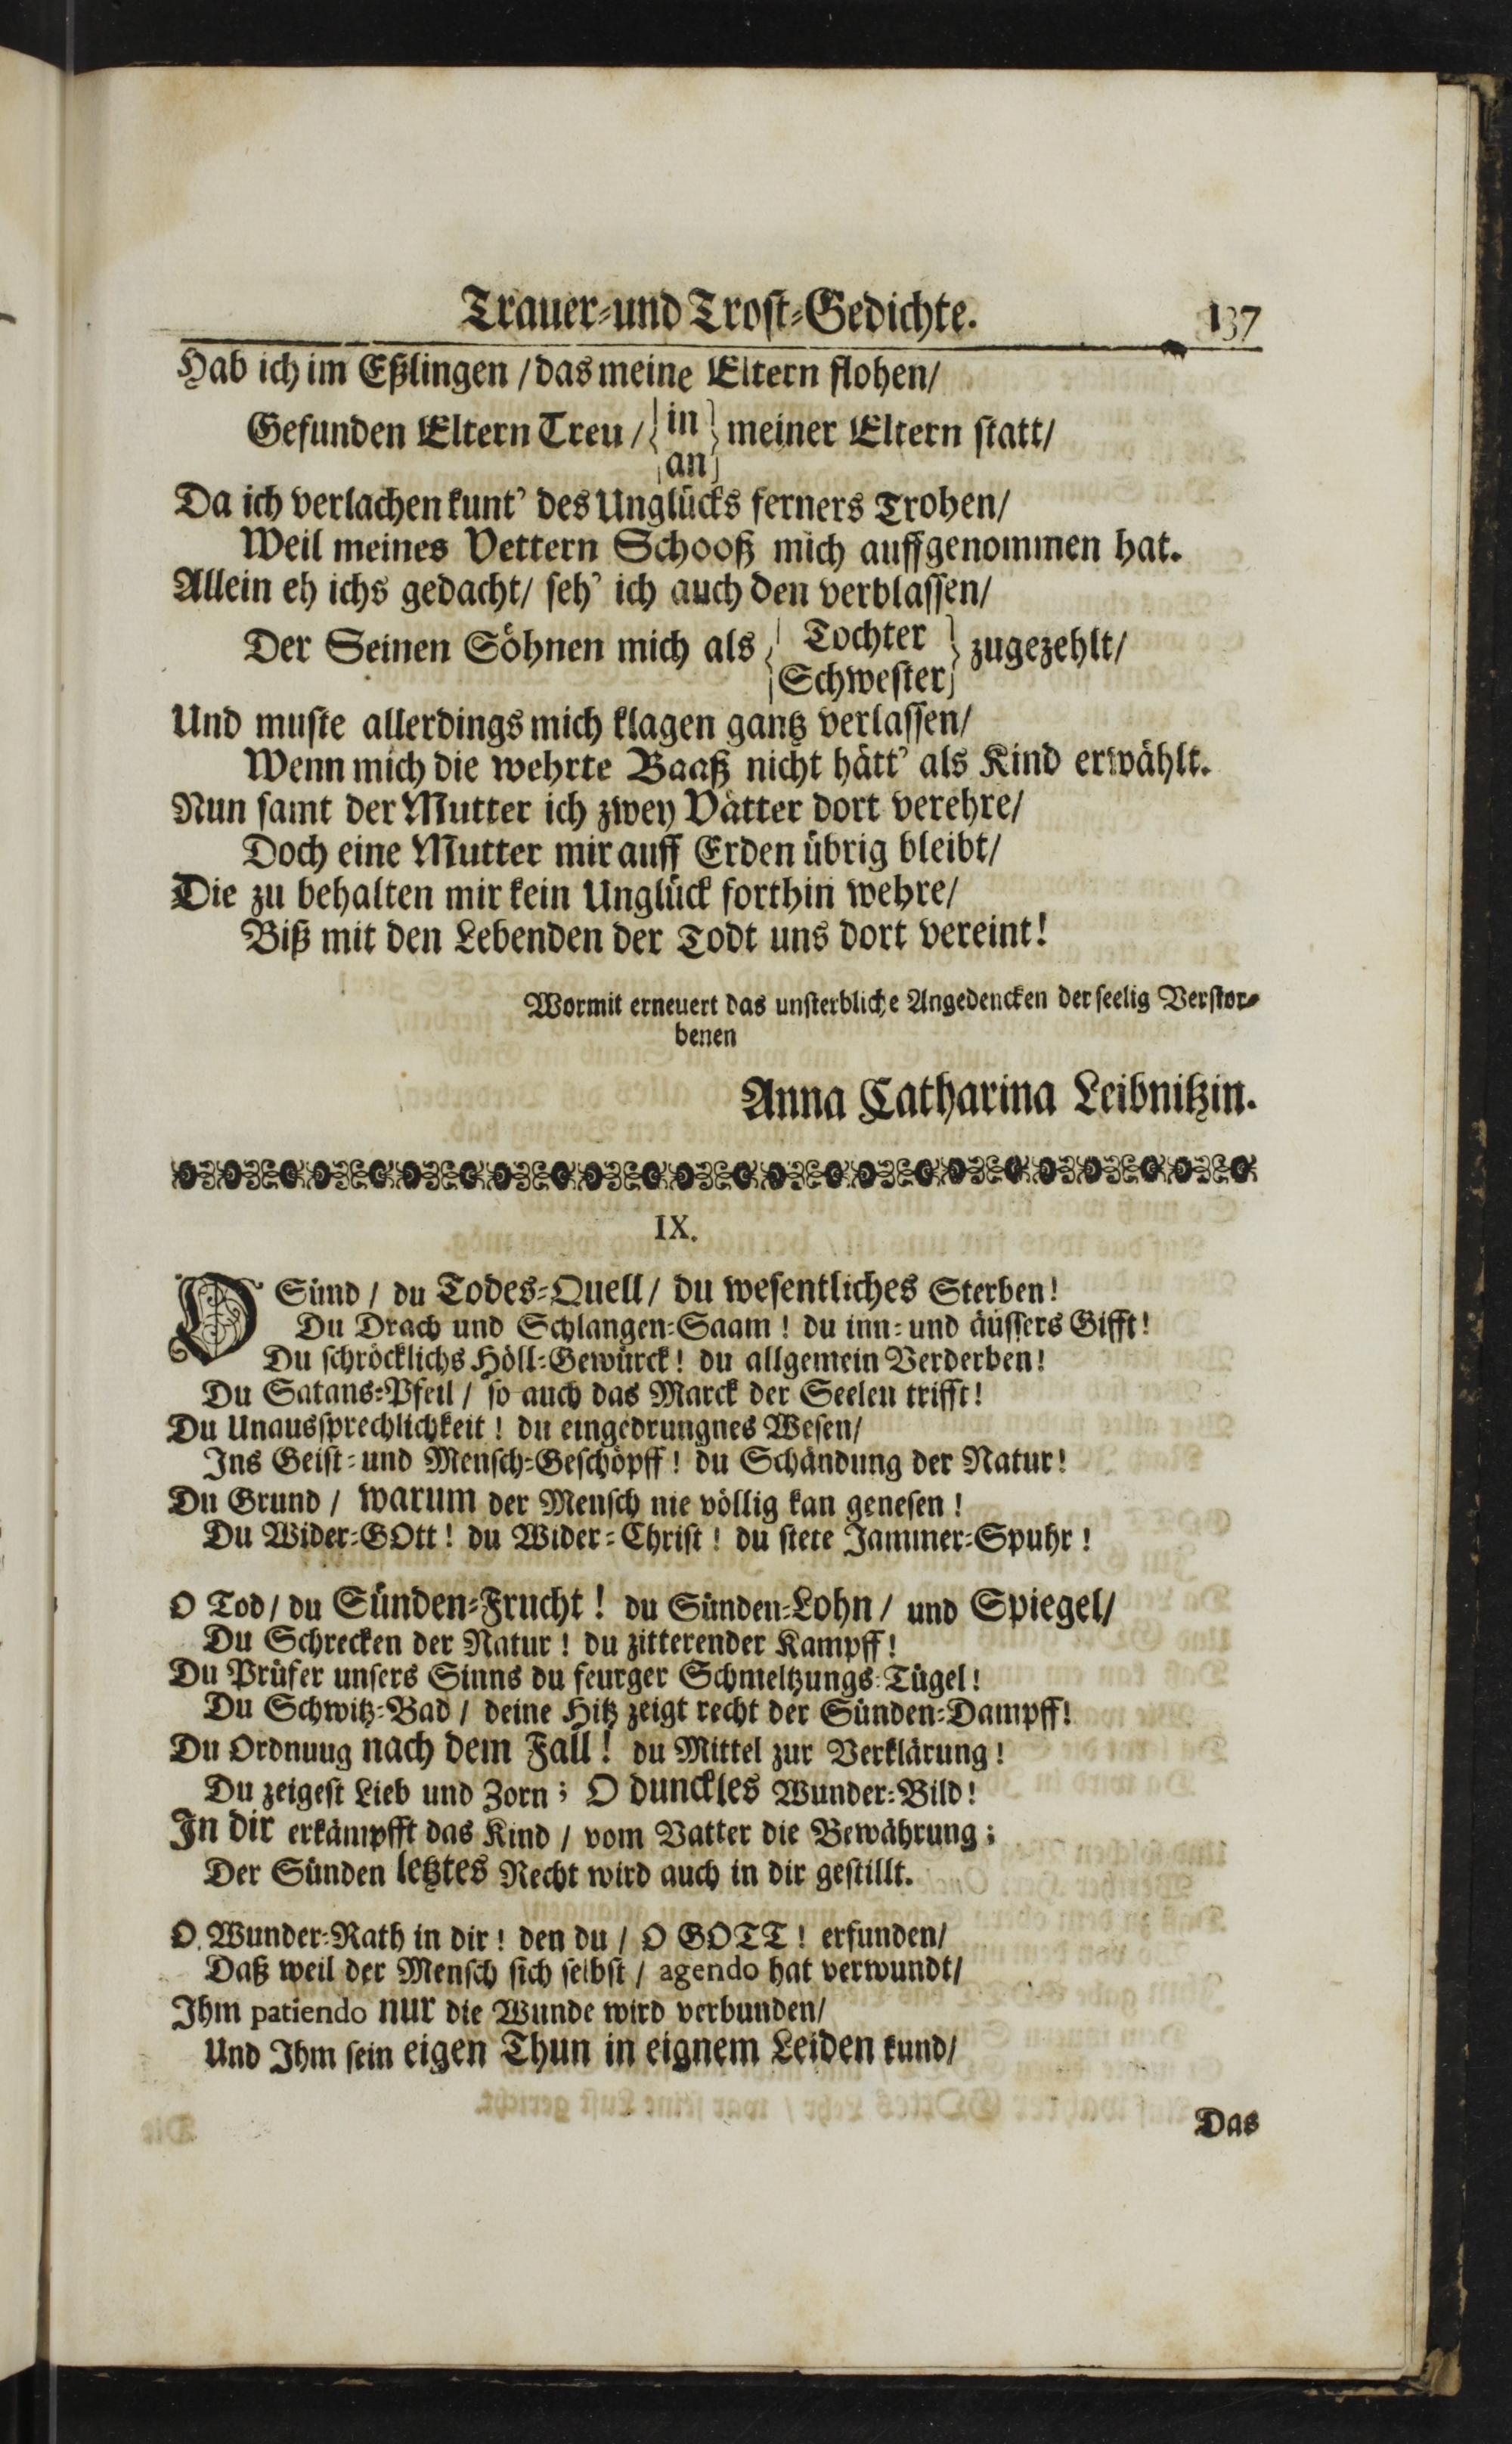 Trauer-und Trost-Gedichte. 137
Hab ich im Eßlingen / das meine Eltern flohen/
Gefunden Eltern Treu / { in } meiner Eltern statt/
an
Da ich verlachen kunt' des Unglücks ferners Trohen/
Weil meines Vettern Schooß mich auffgenommen hat.
Allein eh ichs gedacht/ seh' ich auch den verblassen/
Der Seinen Söhnen mich als { Tochter } zugezehlt/
Schwester
Und muste allerdings mich klagen gantz verlassen/
Wenn mich die wehrte Baaß nicht hätt' als Kind erwählt.
Nun samt der Mutter ich zwey Vätter dort verehre/
Doch eine Mutter mir auff Erden übrig bleibt/
Die zu behalten mir kein Unglück forthin wehre/
Biß mit den Lebenden der Todt uns dort vereint!
Wormit erneuert das unsterbliche Angedencken der seelig Verstor-
benen
Anna Catharina Leibnitzin.
IX.
O Sünd / du Todes-Quell/ du wesentliches Sterben!
Du Drach und Schlangen-Saam ! du inn- und äussers Gifft!
Du schröcklichs Höll-Gewürck! du allgemein Verderben!
Du Satans-Pfeil / so auch das Marck der Seelen trifft!
Du Unaussprechlichkeit ! du eingedrungnes Wesen/
Ins Geist- und Mensch-Geschöpff ! du Schändung der Natur!
Du Grund / warum der Mensch nie völlig kan genesen !
Du Wider-GOtt ! du Wider-Christ ! du stete Jammer-Spuhr !
O Tod/ du Sünden-Frucht ! du Sünden-Lohn / und Spiegel/
Du Schrecken der Natur ! du zitterender Kampff!
Du Prüfer unsers Sinns du feurger Schmeltzungs-Tügel!
Du Schwitz-Bad / deine Hitz zeigt recht der Sünden-Dampff!
Du Ordnuug nach dem Fall ! du Mittel zur Verklärung !
Du zeigest Lieb und Zorn ; O dunckles Wunder-Bild!
In dir erkämpfft das Kind / vom Vatter die Bewährung ;
Der Sünden letztes Recht wird auch in dir gestillt.
O Wunder-Rath in dir ! den du / O GOTT ! erfunden/
Daß weil der Mensch sich selbst / agendo hat verwundt/
Ihm patiendo nur die Wunde wird verbunden/
Und Ihm sein eigen Thun in eignem Leiden kund/
Das